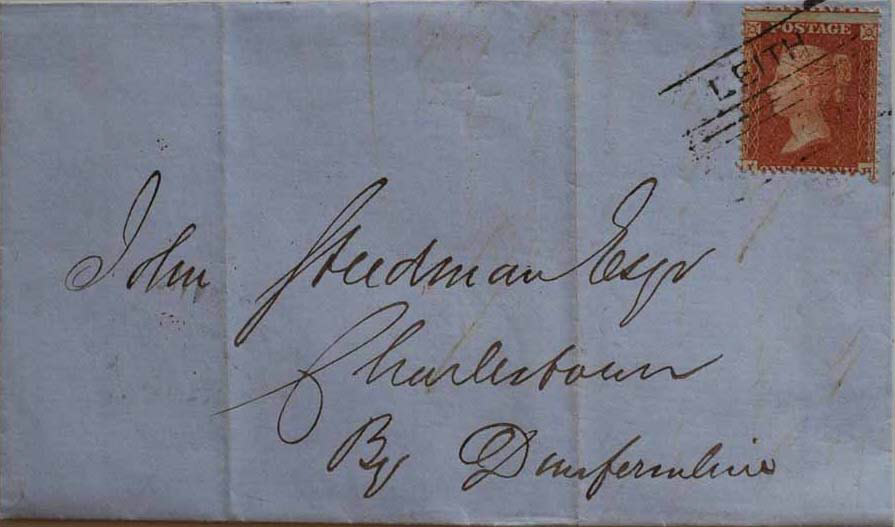 POSTAGE
LEITH
John Steedman Esqr
Charlestown
By Dunfermline